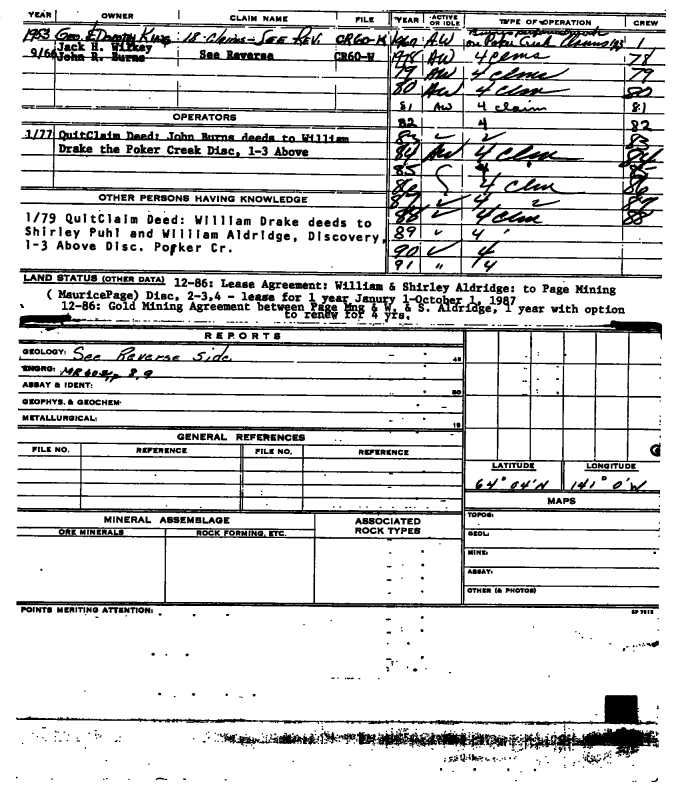 YEAR OWNER CLAIM NAME FILE YEAR ACTIVE OR IDLE TYPE OF OPERATION CREW
1953 Geo. & Dorothy King 18 Claims - SEE REV. CR60-K 1960 AW on Poker Creek Claims 1
9/66 Jack H. Wilkey See Reverse CR60-W 1978 AW 4 clms 78
John R. Burns
79 AW 4 clms 79
80 AW 4 clm 80
81 AW 4 claim 81
OPERATORS 82 4 82
1/77 QuitClaim Deed: John Burns deeds to William 83 ✓ ✓ 83
Drake the Poker Creek Disc, 1-3 Above 84 AW 4 clm 84
85 4 " 85
86 4 clm 86
OTHER PERSONS HAVING KNOWLEDGE 87 ✓ 4 ✓ 87
1/79 QuitClaim Deed: William Drake deeds to 88 ✓ 4 clm 88
Shirley Puhl and William Aldridge, Discovery, 89 ✓ 4 '
1-3 Above Disc. Porker Cr. 90 ✓ 4
91 " 4
LAND STATUS (OTHER DATA) 12-86: Lease Agreement: William & Shirley Aldridge: to Page Mining
( MauricePage) Disc, 2-3,4 - lease for 1 year Janury 1-October 1, 1987
12-86: Gold Mining Agreement between Page Mng & W. & S. Aldridge, 1 year with option
to renew for 4 yrs.
REPORTS
GEOLOGY: See Reverse Side 45
ENGRG: 8, 9
ASSAY & IDENT: 30
GEOPHYS. & GEOCHEM-
METALLURGICAL: 15
GENERAL REFERENCES
FILE NO. REFERENCE FILE NO. REFERENCE
LATITUDE LONGITUDE
64° 04'N 141° 0'W
MAPS
MINERAL ASSEMBLAGE ASSOCIATED ROCK TYPES
ORE MINERALS ROCK FORMING, ETC.
TOPOG:
GEOL:
MINE:
ASSAY:
OTHER (& PHOTOS)
POINTS MERITING ATTENTION: